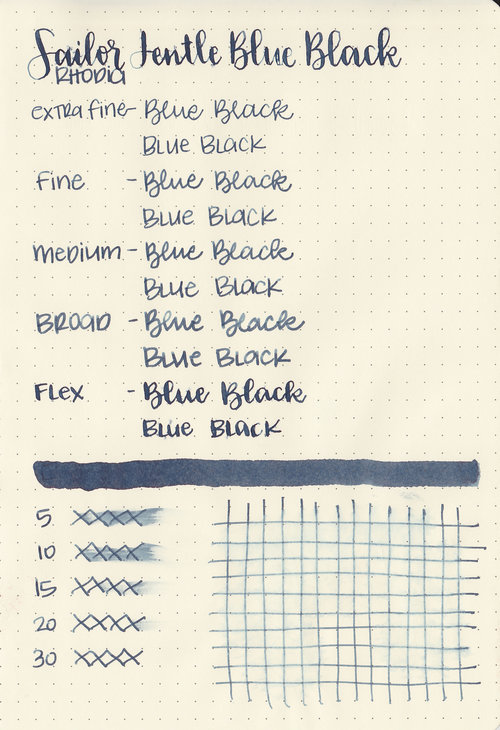 Sailor Jentle Blue Black
Rhodia
extra fine - Blue Black
Blue Black
Fine - Blue Black
Blue Black
Medium - Blue Black
Blue Black
Broad - Blue Black
Blue Black
Flex - Blue Black
Blue Black
5 XXXX
10 XXXX
15 XXXX
20 XXXX
30 XXXX